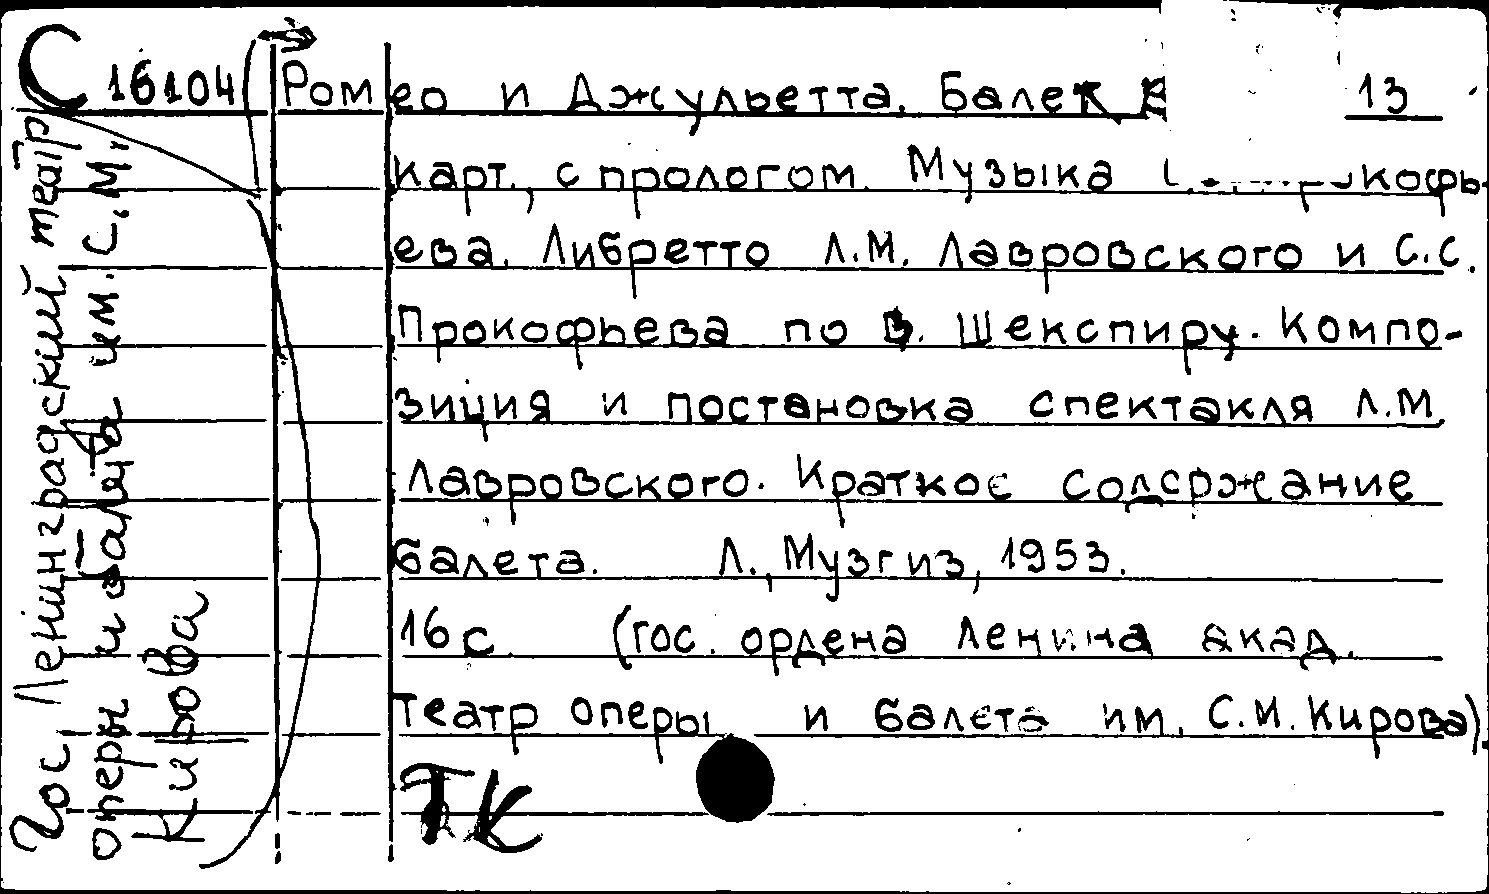 С 16104 Ромео и Джульетта. Балет в 13
карт., с прологом. Музыка Прокофь-
ева. Либретто Л.М. Лавровского и С.С.
Прокофьева по В. Шекспиру. Компо-
зиция и постановка спектакля Л.М.
Лавровского. Краткое содержание
балета. Л., Музгиз, 1953.
16 с. (Гос. ордена Ленина акад.
театр оперы и балета им. С.М. Кирова).
ТК
Гос. Ленинградский театр
оперы и балета им. С.М.
Кирова